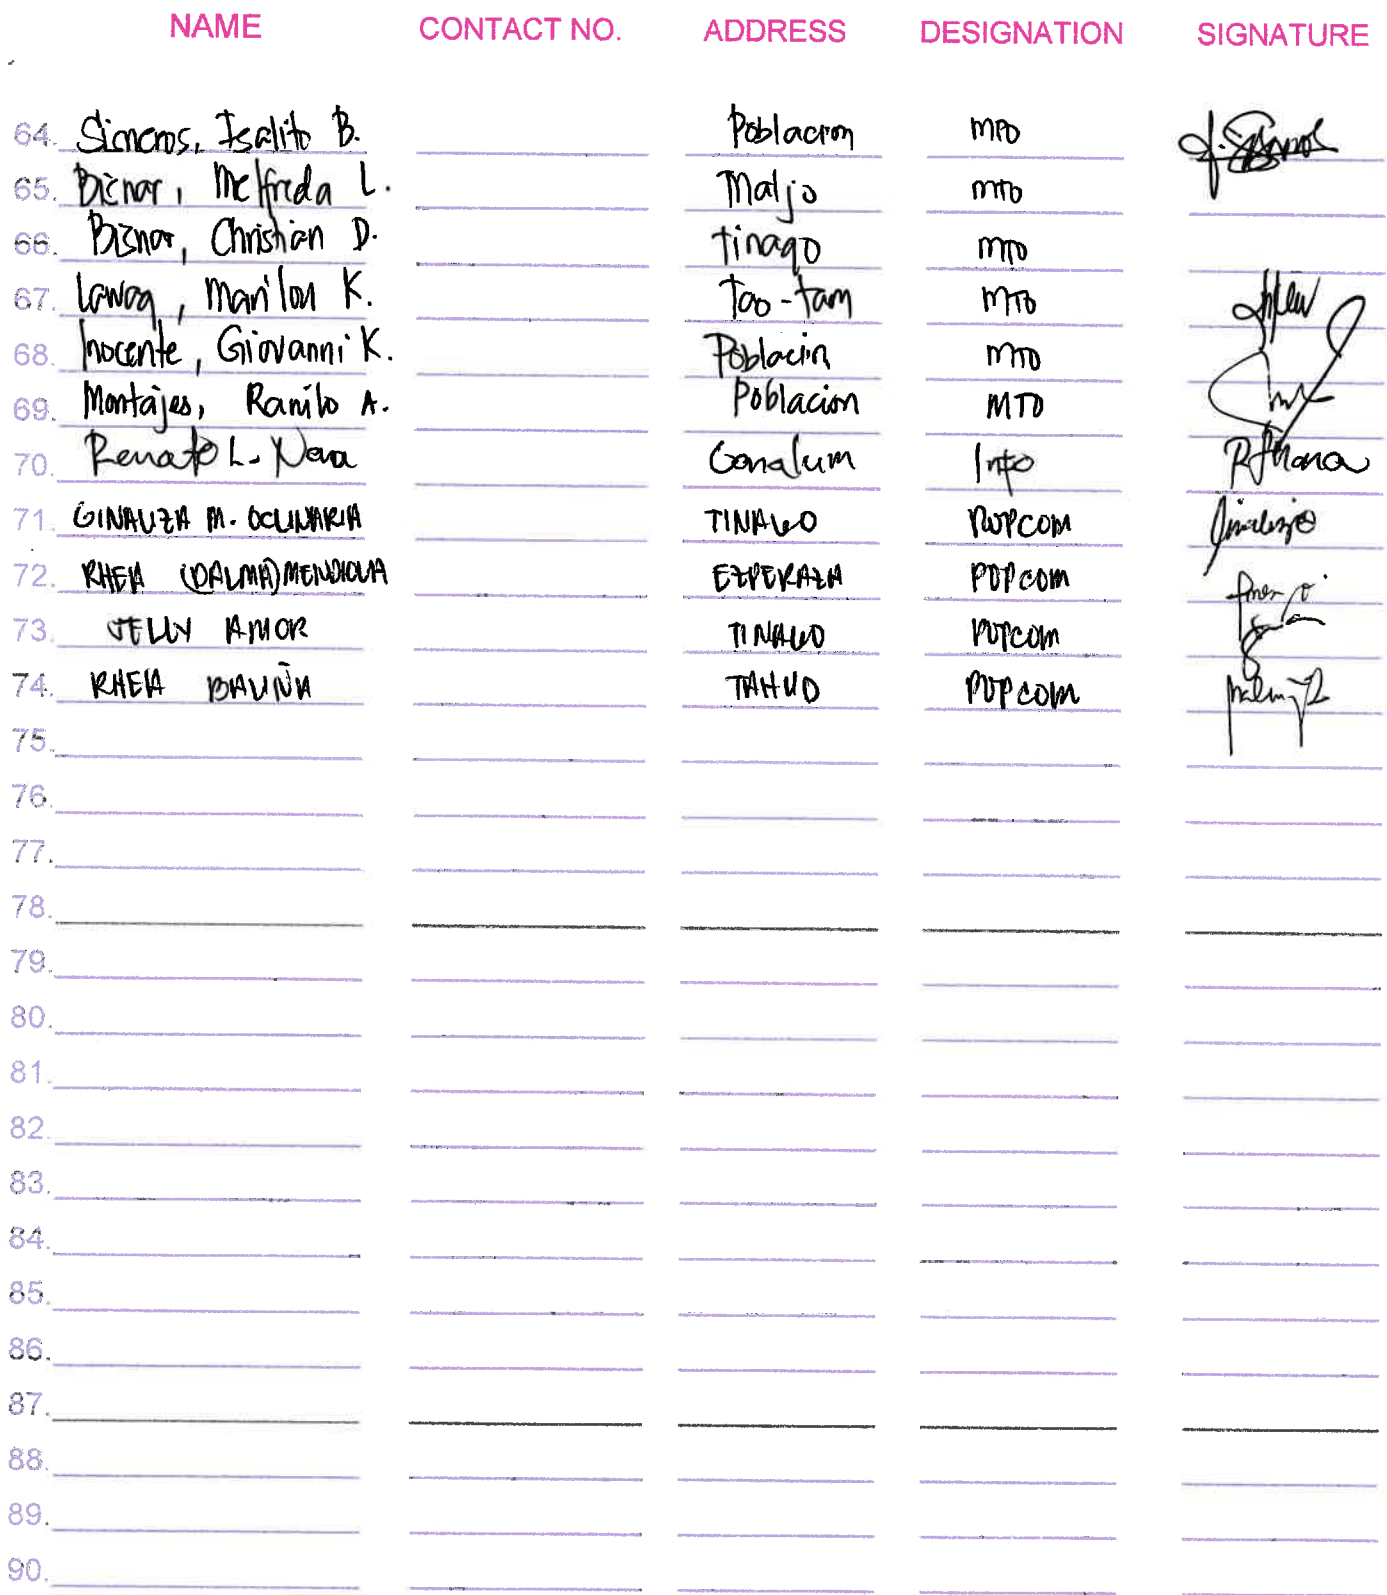 NAME CONTACT NO. ADDRESS DESIGNATION SIGNATURE
64. Sisneros, Isalito B. Poblacion MPD
65. Biznar, Melfreda L. Maljo MTO
66. Biznar, Christian D. Tinago MTO
67. Lawag, Marilou K. Tao-tam MTO
68. Inocente, Giovanni K. Poblacion MTO
69. Montajes, Ranilo A. Poblacion MTO
70. Renato L. Nara Canalum Info
71. GINALIZA M. OCLINARIA TINAGO POPCOM
72. RHEA (DALMA) MENDIOLA EZPERAZA POPCOM
73. JELLY AMOR TINAGO POPCOM
74. RHEA BALIÑA TAHUD POPCOM
75.
76.
77.
78.
79.
80.
81.
82.
83.
84.
85.
86.
87.
88.
89.
90.